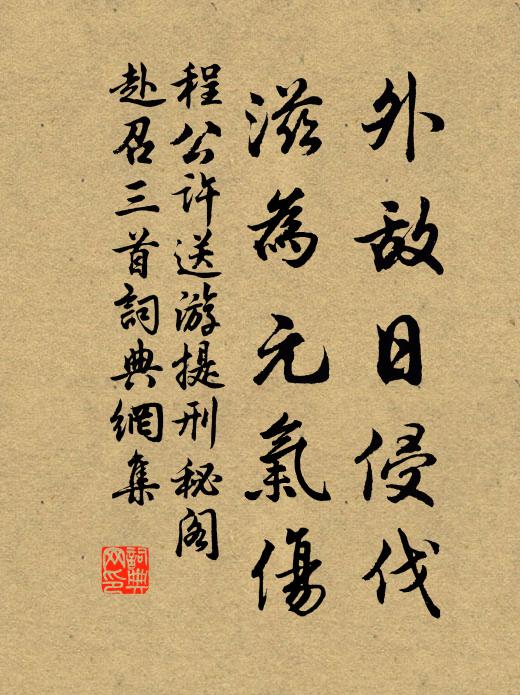 外敌日侵伐
滋為元氣傷
程公许送游提刑秘阁
赴召三首詞典網集
詞典網印